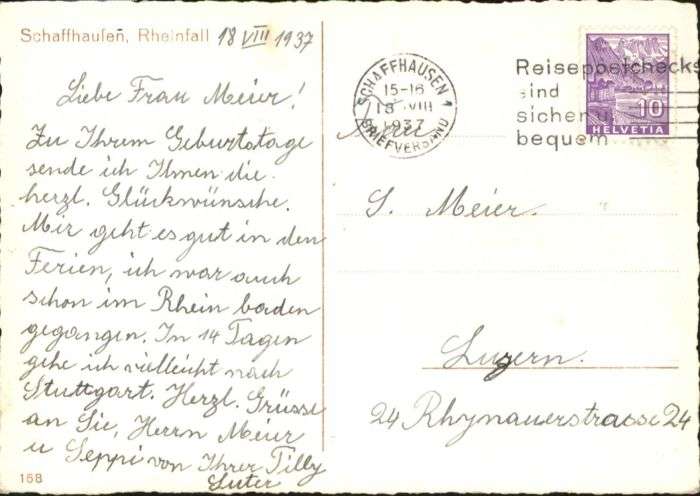 Schaffhausen, Rheinfall 18 VIII 1937
Liebe Frau Meier!
Zu Ihrem Geburtstage
sende ich Ihnen die
herzl. Glückwünsche.
Mir geht es gut in den
Ferien, ich war auch
schon im Rhein baden
gegangen. In 14 Tagen
gehe ich vielleicht nach
Stuttgart. Herzl. Grüsse
an Sie, Herrn Meier
u Seppi von Ihrer Tilly
Suter
168
SCHAFFHAUSEN 1
15-16
18 VIII
1937
BRIEFVERSAND
Reisepostchecks
sind
sicher u
bequem
10
HELVETIA
S. Meier.
Luzern.
24 Rhynauerstrasse 24